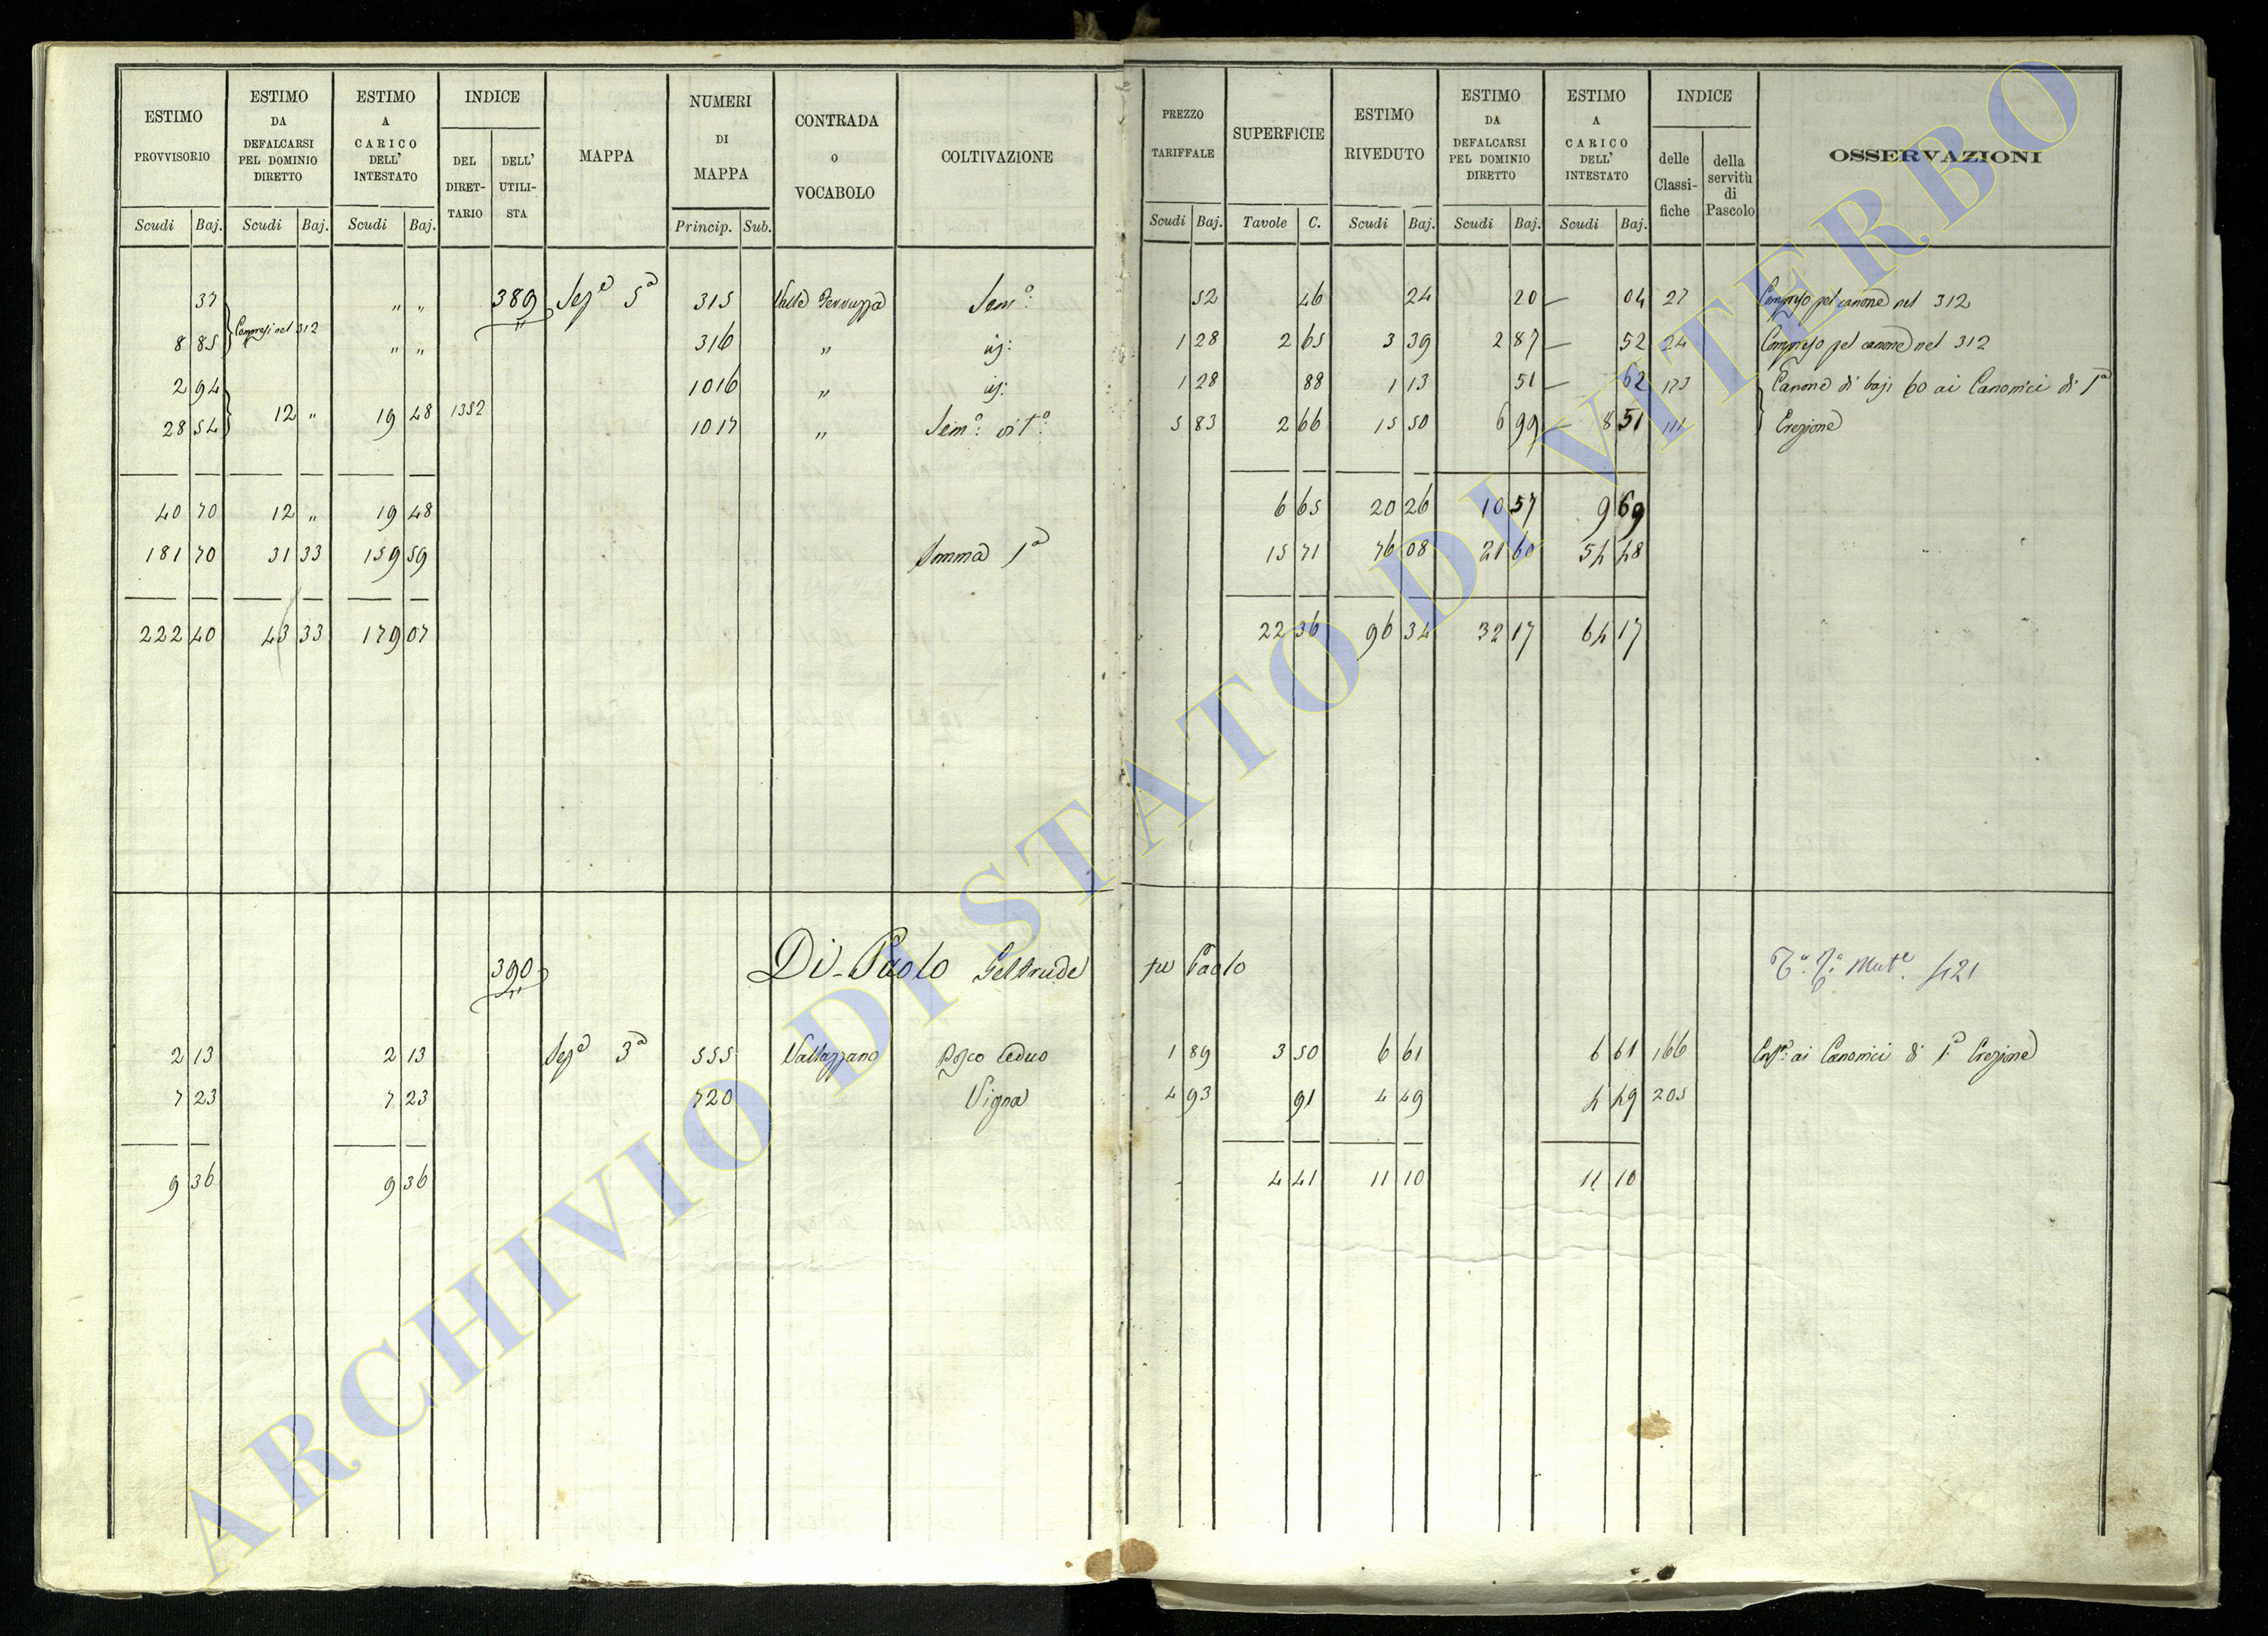 ESTIMO PROVVISORIO | ESTIMO DA DEFALCARSI PEL DOMINIO DIRETTO | ESTIMO A CARICO DELL' INTESTATO | INDICE | MAPPA | NUMERI DI MAPPA | CONTRADA O VOCABOLO | COLTIVAZIONE | PREZZO TARIFFALE | SUPERFICIE | ESTIMO RIVEDUTO | ESTIMO DA DEFALCARSI PEL DOMINIO DIRETTO | ESTIMO A CARICO DELL' INTESTATO | INDICE | OSSERVAZIONI
DEL DIRETTARIO | DELL' UTILISTA | delle Classifiche | della servitù di Pascolo
Scudi | Baj. | Scudi | Baj. | Scudi | Baj. | Princip. | Sub. | Scudi | Baj. | Tavole | C. | Scudi | Baj. | Scudi | Baj. | Scudi | Baj.
37 | Compresi nel 312 | " " | 389 | Sezᵉ 5ª | 315 | Valle | Semº: | 52 | 46 | 24 | 20 — | 04 | 27 | Compreso pel canone nel 312
8 85 | " " | 316 | " | id: | 1 28 | 2 65 | 3 39 | 2 87 — | 52 | 24 | Compreso pel canone nel 312
2 94 | 1016 | " | id: | 1 28 | 88 | 1 13 | 51 — | 62 | 173 | Canone di baj: 60 ai Canonici di 1ª
28 54 | 12 " | 19 48 | 1352 | 1017 | " | Semº: vitº: | 5 83 | 2 66 | 15 50 | 6 99 — | 8 51 | 111 | Erezione
40 70 | 12 " | 19 48 | 6 65 | 20 26 | 10 57 | 9 69
181 70 | 31 33 | 159 59 | Somma 1ª | 15 71 | 76 08 | 21 60 | 54 48
222 40 | 43 33 | 179 07 | 22 36 | 96 34 | 32 17 | 64 17
390 | Di-Paolo Geltrude fu Paolo | Mutᵉ 421
2 13 | 2 13 | Sezᵉ 3ª | 555 | Vallazzano | Bosco Ceduo | 1 89 | 3 50 | 6 61 | 6 61 | 166 | ai Canonici di 1ª Erezione
7 23 | 7 23 | 720 | Vigna | 4 93 | 91 | 4 49 | 4 49 | 205
9 36 | 9 36 | 4 41 | 11 10 | 11 10
ARCHIVIO DI STATO DI VITERBO